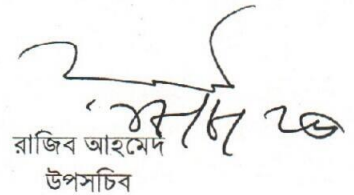 রাজিব আহমেদ
উপসচিব